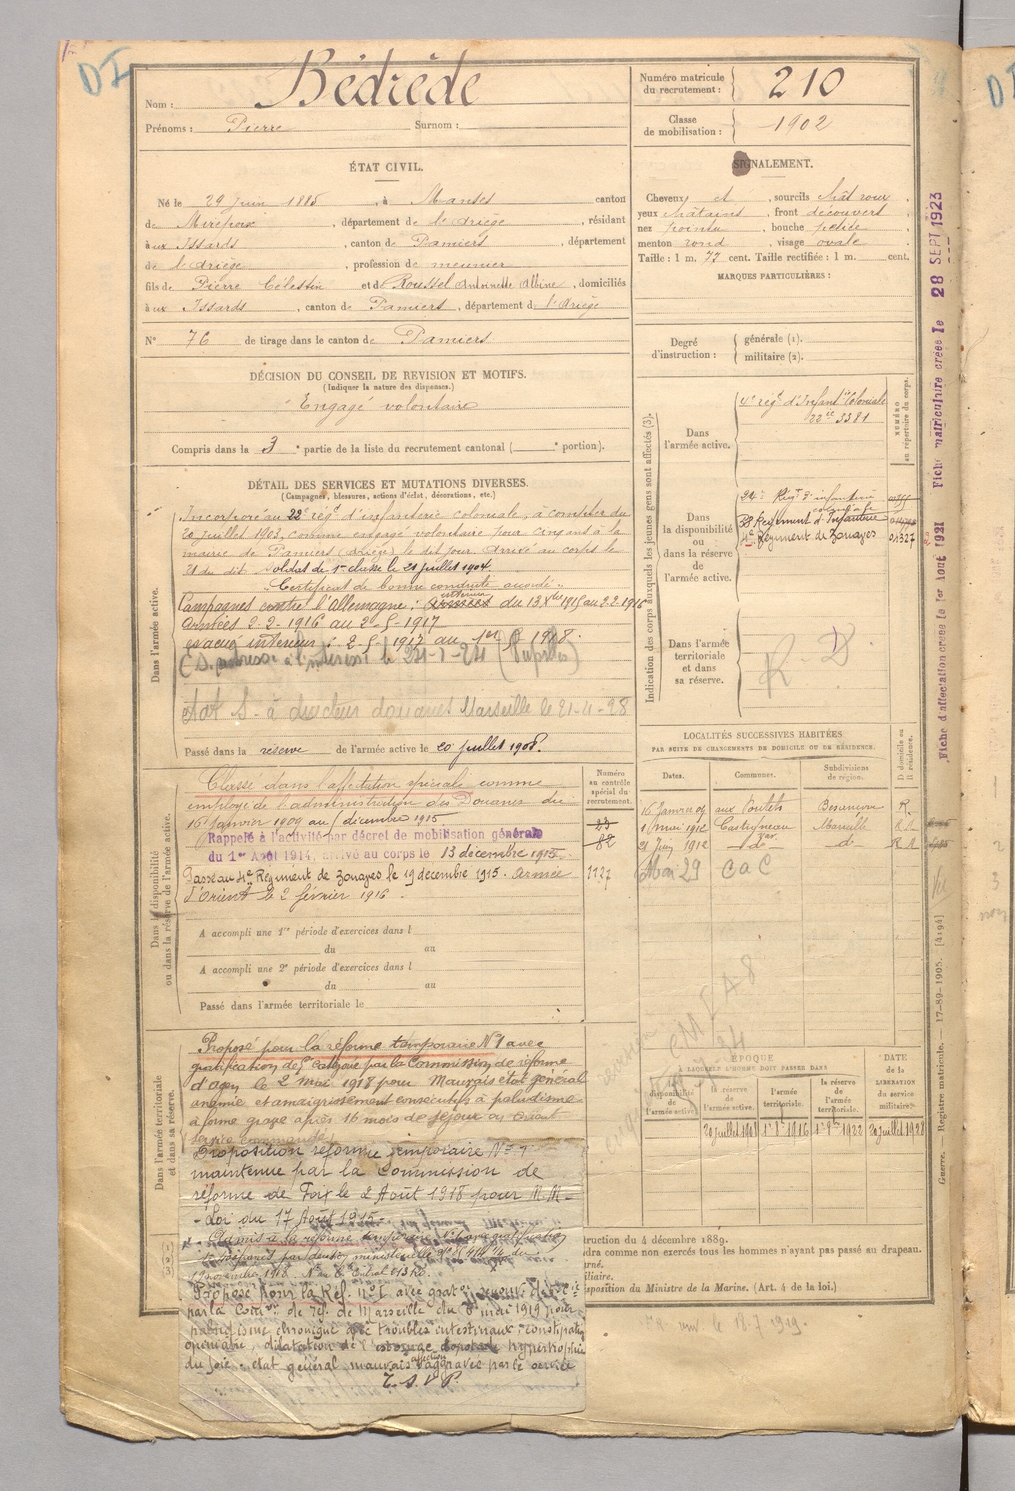 DI
Nom : Bédrède
Prénoms : Pierre Surnom :
Numéro matricule du recrutement : 210
Classe de mobilisation : 1902
ÉTAT CIVIL.
Né le 29 Juin 1885, à Manses canton
de Mirepoix, département de l'Ariège, résidant
à ux Issards, canton de Pamiers, département
de l'Ariège, profession de meunier
fils de Pierre Célestin et de Roussel Antoinette Albine, domiciliés
à ux Issards, canton de Pamiers, département d l'Ariège
N° 76 de tirage dans le canton de Pamiers
SIGNALEMENT.
Cheveux et, sourcils chât roux,
yeux châtains, front découvert,
nez pointu, bouche petite,
menton rond, visage ovale.
Taille : 1 m. 77 cent. Taille rectifiée : 1 m. cent.
MARQUES PARTICULIÈRES :
Degré d'instruction : générale (1). militaire (2).
DÉCISION DU CONSEIL DE REVISION ET MOTIFS.
(Indiquer la nature des dispenses.)
Engagé volontaire
Compris dans la 3e partie de la liste du recrutement cantonal ( portion).
DÉTAIL DES SERVICES ET MUTATIONS DIVERSES.
(Campagnes, blessures, actions d'éclat, décorations, etc.)
Dans l'armée active.
Incorporé au 22e régt d'infanterie coloniale, à compter du
20 juillet 1903, comme engagé volontaire pour cinq ans à la
mairie de Pamiers (Ariège) le dit jour. Arrivé au corps le
21 du dit. Soldat de 1re classe le 21 juillet 1904
Certificat de bonne conduite accordé.
Campagnes contre l'Allemagne : intérieur du 13 Xbre 1915 au 2.2.1916
Armées 2-2-1916 au 2-5-1917
évacué intérieur : 2-5-1917 au 1er 1918.
à l'intérieur le
S. à directeur douanes Marseille le 21-11-28
Passé dans la réserve de l'armée active le 20 juillet 1908.
Indication des corps auxquels les jeunes gens sont affectés (3).
NUMÉRO au répertoire du corps.
Dans l'armée active.
4e régt d'Infantrie Coloniale
22ic 3381
Dans la disponibilité ou dans la réserve de l'armée active.
24e Régt d'infanterie coloniale
38 Régiment d'Infanterie
4e Régiment de Zouaves 01327
Dans l'armée territoriale et dans sa réserve.
R. D
LOCALITÉS SUCCESSIVES HABITÉES
PAR SUITE DE CHANGEMENTS DE DOMICILE OU DE RÉSIDENCE.
Dates. Communes. Subdivisions de région. D domicile ou R résidence.
16 Janvier 09 aux Besançon R.
1er mai 1912 Marseille R.
21 Juin 1912 -d°- -d°-
Mai 29 C a C
Dans la disponibilité ou dans la réserve de l'armée active.
Numéro au contrôle spécial du recrutement.
23
82
1127
Classé dans l'affectation spéciale comme
employé de l'administration des Douanes du
16 Janvier 1909 au 1 décembre 1915
Rappelé à l'activité par décret de mobilisation générale
du 1er Août 1914, arrivé au corps le 13 décembre 1915.
Passé au 4e Régiment de Zouaves le 19 décembre 1915. Armée
d'Orient le 2 février 1916.
A accompli une 1re période d'exercices dans l
du au
A accompli une 2e période d'exercices dans l
du au
Passé dans l'armée territoriale le
ÉPOQUE
À LAQUELLE L'HOMME DOIT PASSER DANS
la disponibilité de l'armée active. la réserve de l'armée active. l'armée territoriale. la réserve de l'armée territoriale.
DATE de la LIBÉRATION du service militaire.
20 juillet 1908 1er 8bre 1916 1er 8bre 1922 20 juillet 1928
Dans l'armée territoriale et dans sa réserve.
Proposé pour la réforme temporaire N°1 avec
gratification de 5e catégorie par la Commission de réforme
d'Agen le 2 mai 1918 pour Mauvais état général
anémie et amaigrissement consécutifs à paludisme
à forme grave après 16 mois de séjour en Orient
Service commandé
Proposition réforme temporaire N° 1
maintenue par la Commission de
réforme de Foix le 2 Août 1918 pour M. M.
- Loi du 17 Août 1915 -
Admis à la réforme temporaire
19 novembre 1918.
Proposé pour la Réf. n°1 avec grat.
par la Comon de réf. de Marseille du mai 1919 pour
paludisme chronique avec troubles intestinaux, constipation
opiniâtre, dilatation de l'estomac hypertrophie
du foie, état général mauvais affection aggravée par le service
T. S. V. P.
truction du 4 décembre 1889.
udra comme non exercés tous les hommes n'ayant pas passé au drapeau.
rné.
iliaire.
sposition du Ministre de la Marine. (Art. 4 de la loi.)
Fiche d'affectation créée le 1er Août 1921 Fiche matriculaire créée le 28 SEPT 1923
Guerre. — Registre matricule. — 17-89-1905. [4194]